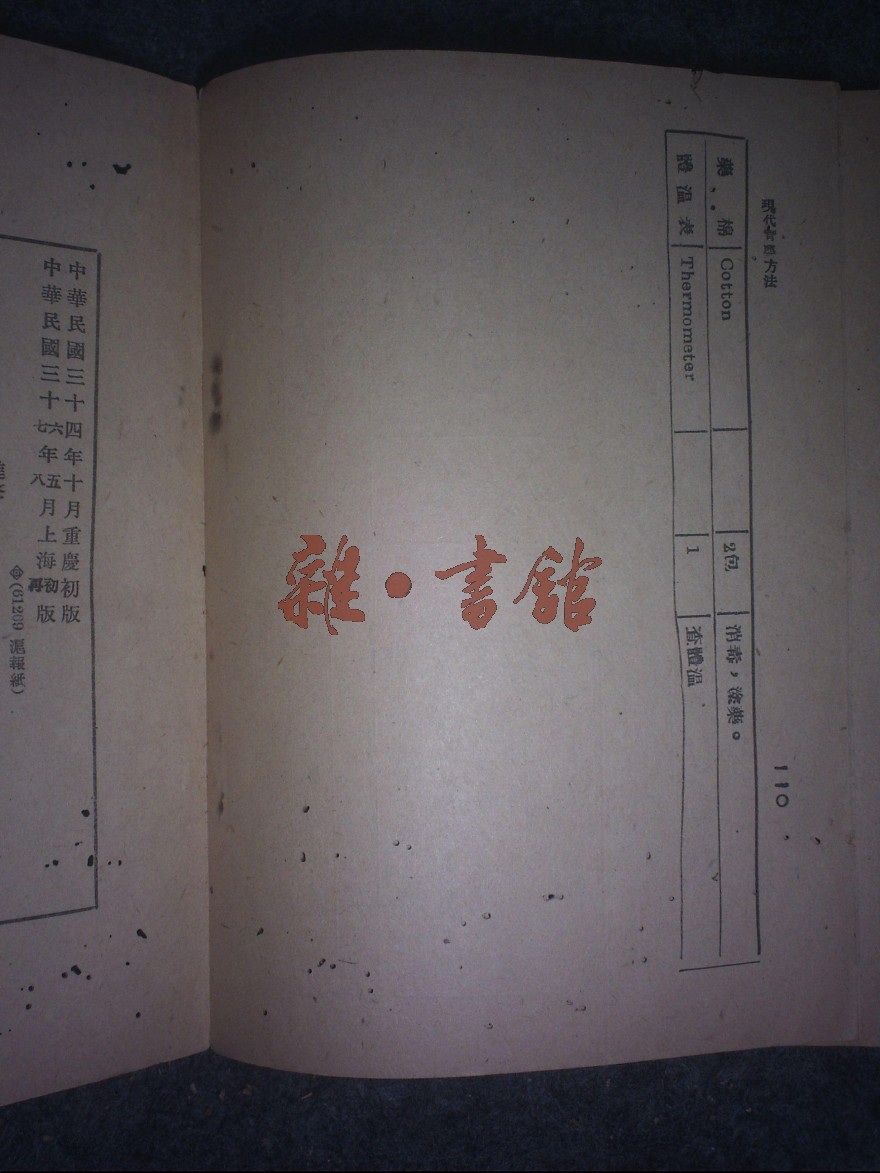 現代育嬰方法
110
藥棉 Cotton 2包 消毒,塗藥。
體溫表 Thermometer 1 查體溫
中華民國三十四年十月重慶初版
中華民國三十六年五月上海初版
七 八 再
(61209 滬報紙)
雜·書館